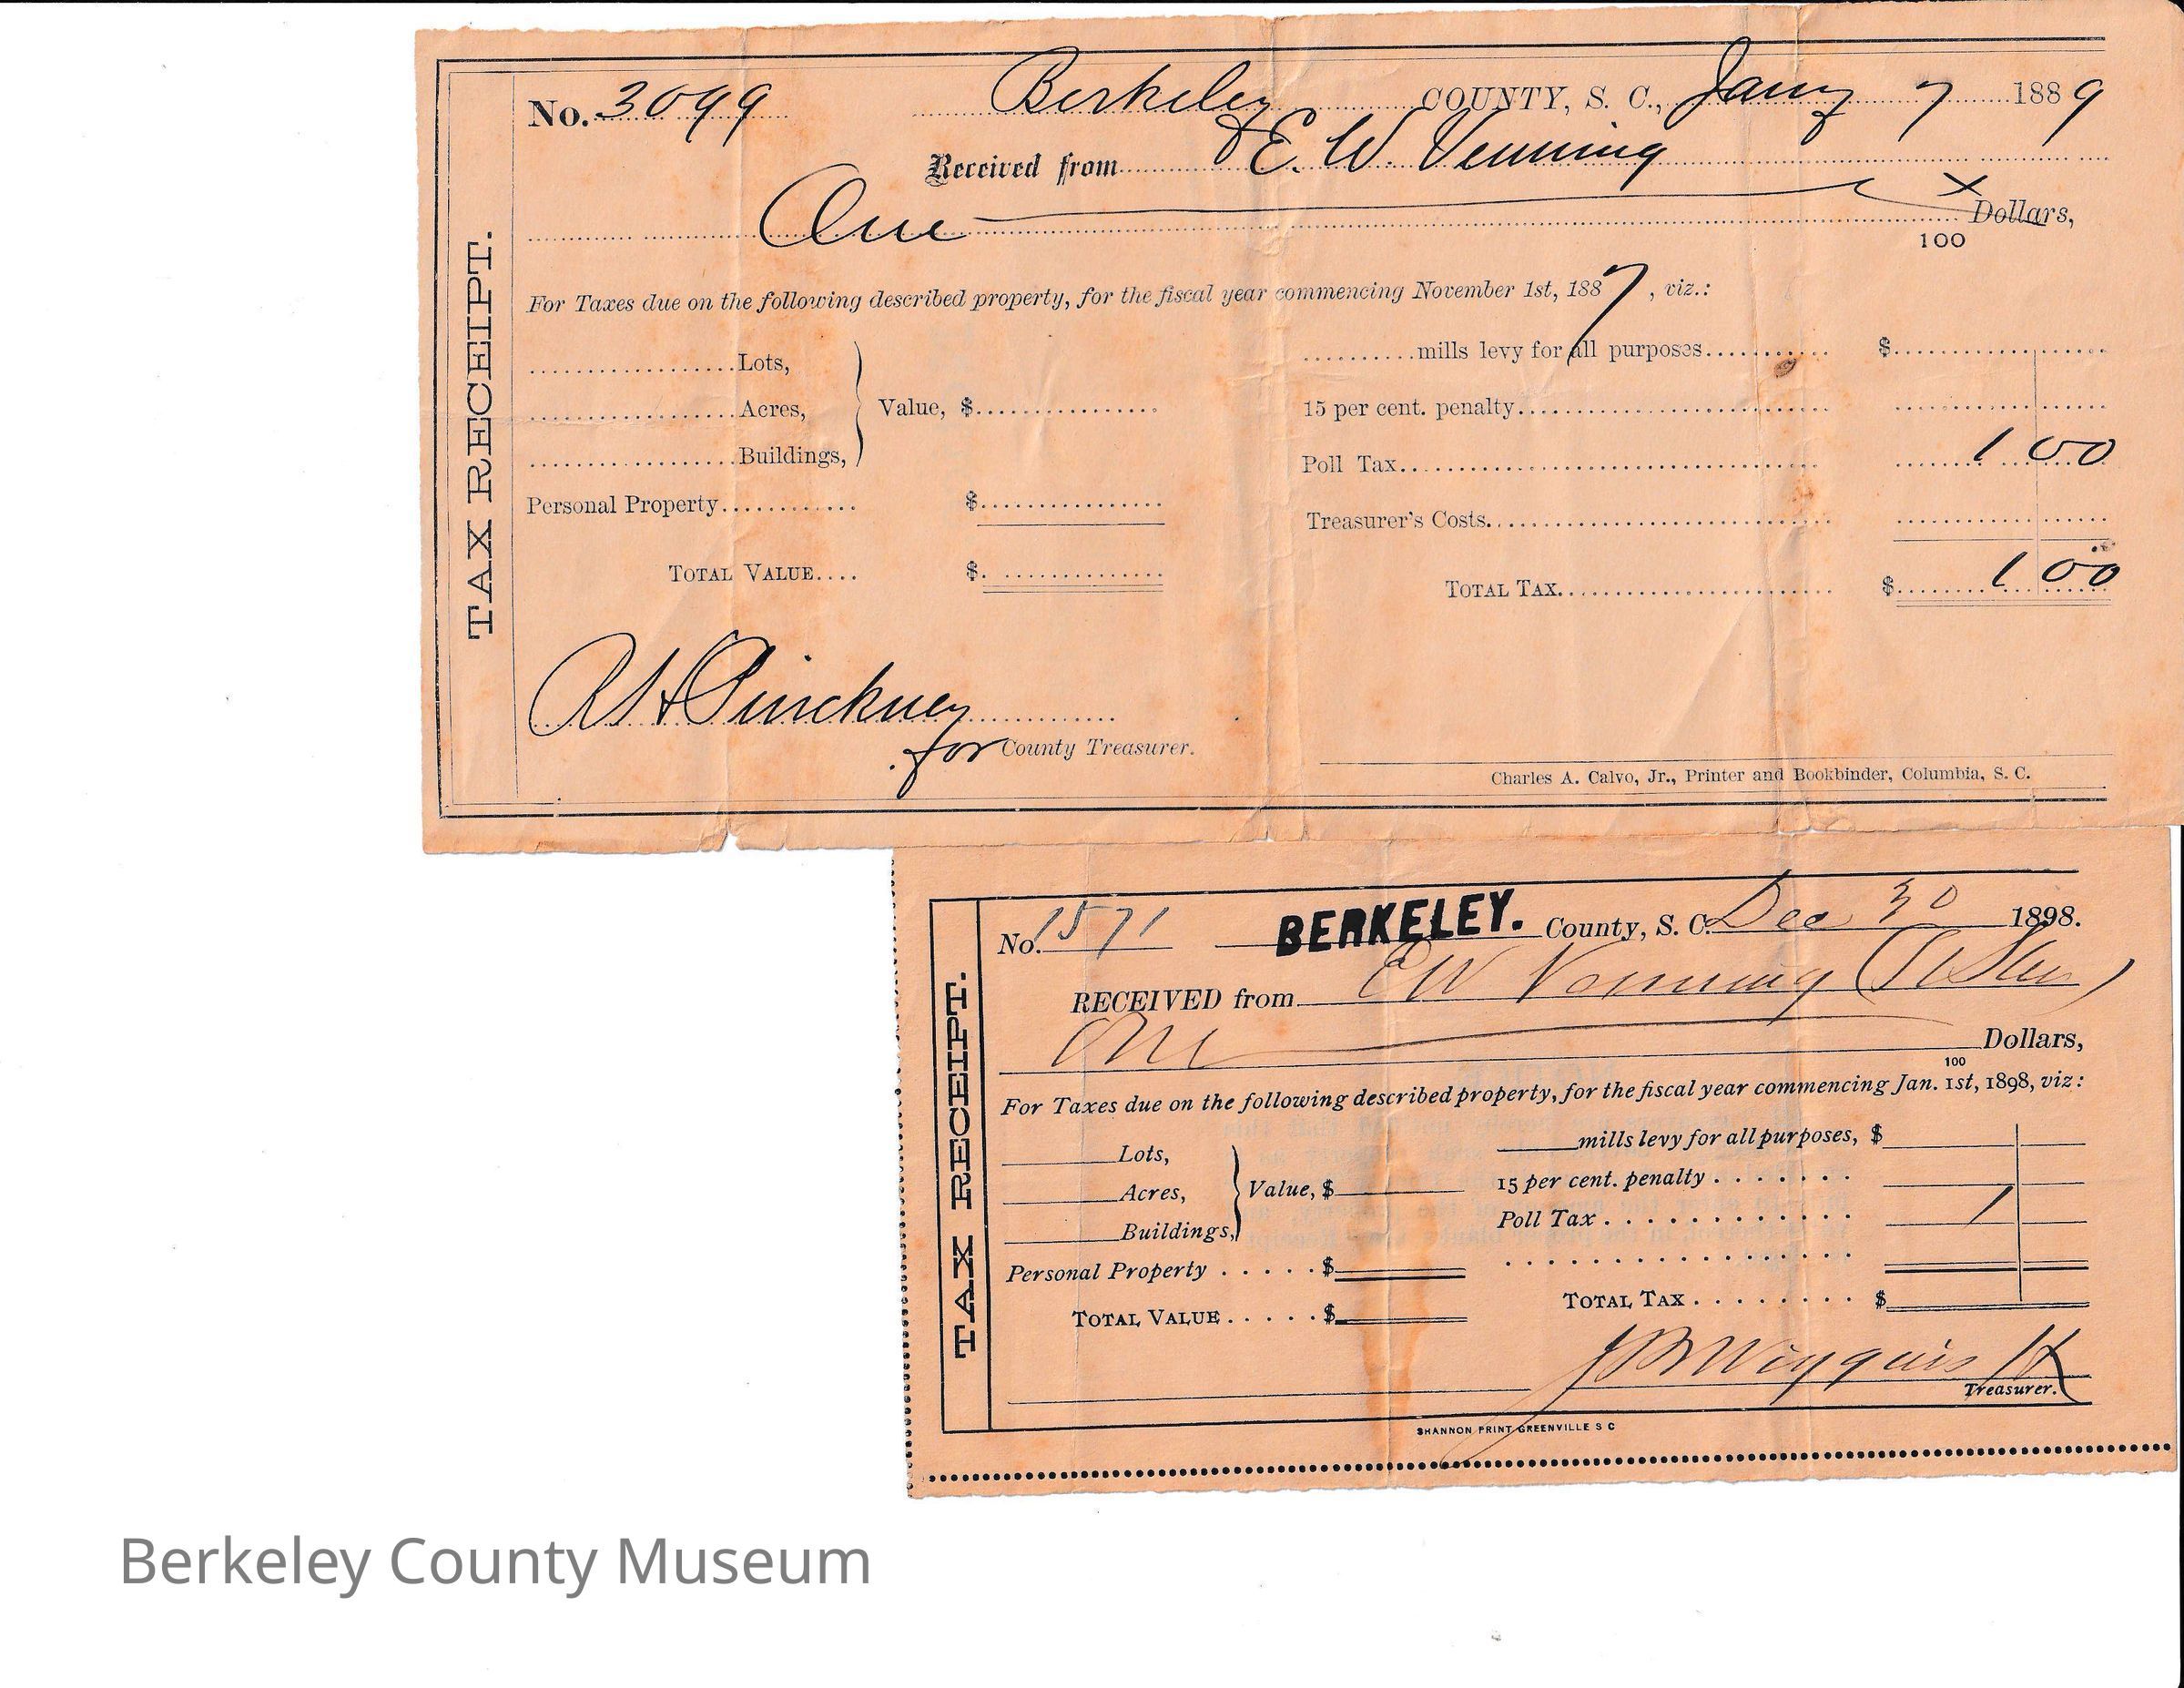 TAX RECEIPT.
No. 3099 Berkeley COUNTY, S. C., Jany 7 1889
Received from E. W. Venning
One x Dollars,
100
For Taxes due on the following described property, for the fiscal year commencing November 1st, 1887, viz.:
Lots, mills levy for all purposes $
Acres, Value, $ 15 per cent. penalty
Buildings, Poll Tax 1 00
Personal Property $ Treasurer's Costs
TOTAL VALUE $ TOTAL TAX $ 1 00
Pinckney
for County Treasurer.
Charles A. Calvo, Jr., Printer and Bookbinder, Columbia, S. C.
TAX RECEIPT.
No. 1571 BERKELEY. County, S. C. Dec 30 1898.
RECEIVED from E W Venning
One Dollars,
100
For Taxes due on the following described property, for the fiscal year commencing Jan. 1st, 1898, viz:
Lots, mills levy for all purposes, $
Acres, Value, $ 15 per cent. penalty
Buildings, Poll Tax 1
Personal Property $
TOTAL VALUE $ TOTAL TAX $
Treasurer.
SHANNON PRINT GREENVILLE S C
Berkeley County Museum